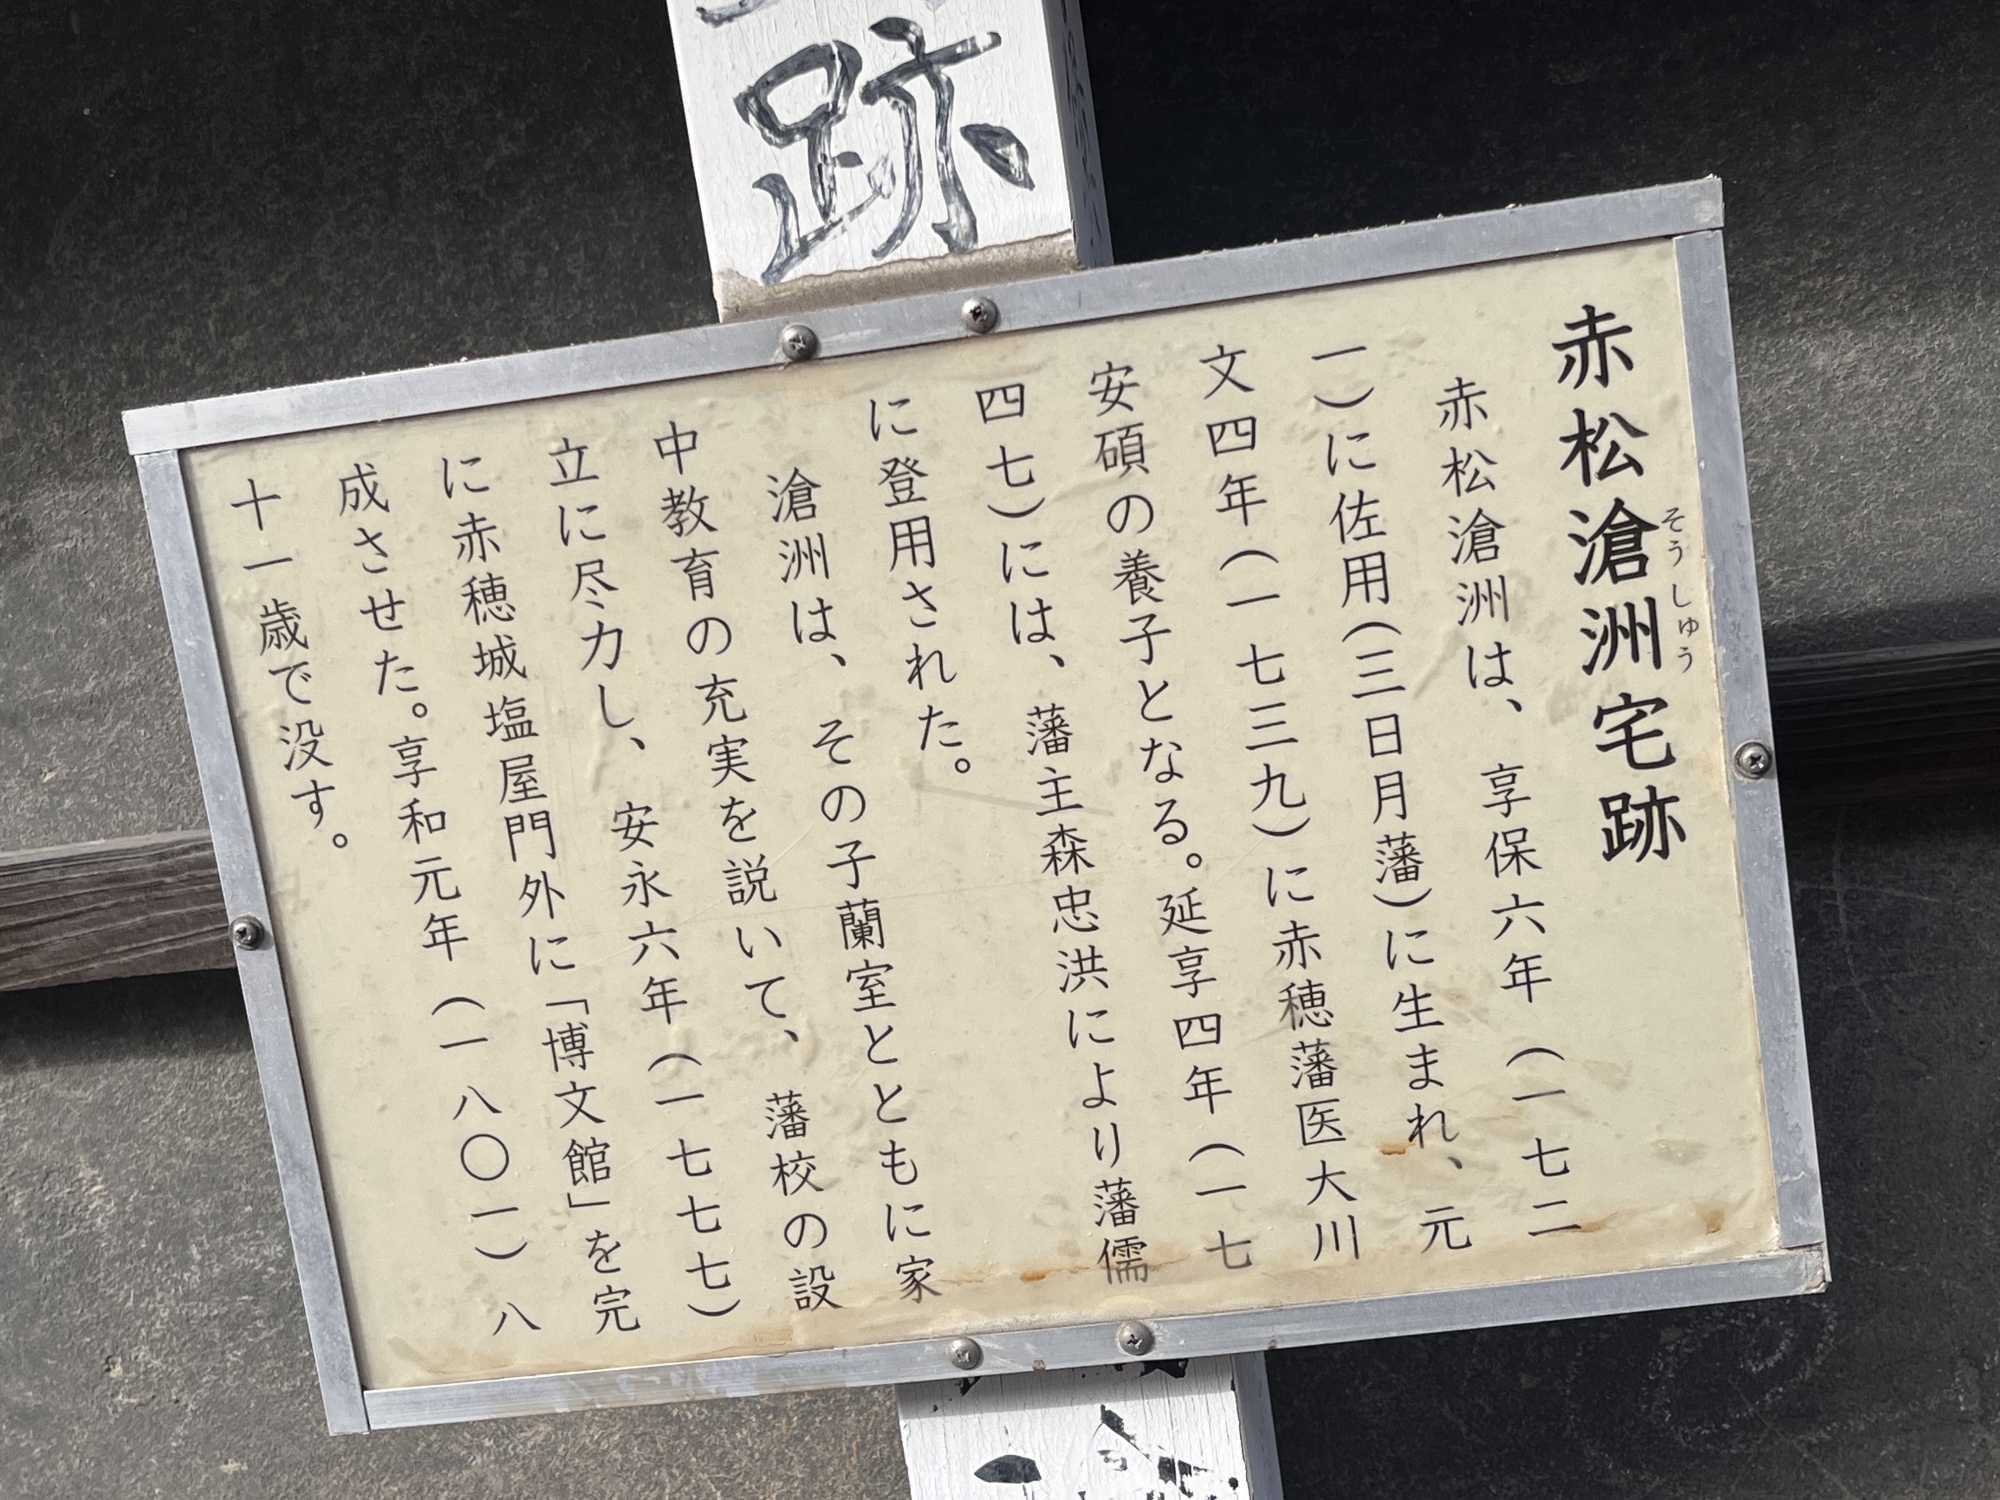 跡
赤松滄洲宅跡
そうしゅう
赤松滄洲は、享保六年(一七二
一)に佐用(三日月藩)に生まれ、元
文四年(一七三九)に赤穂藩医大川
安碩の養子となる。延享四年(一七
四七)には、藩主森忠洪により藩儒
に登用された。
滄洲は、その子蘭室とともに家
中教育の充実を説いて、藩校の設
立に尽力し、安永六年(一七七七)
に赤穂城塩屋門外に「博文館」を完
成させた。享和元年(一八〇一)八
十一歳で没す。